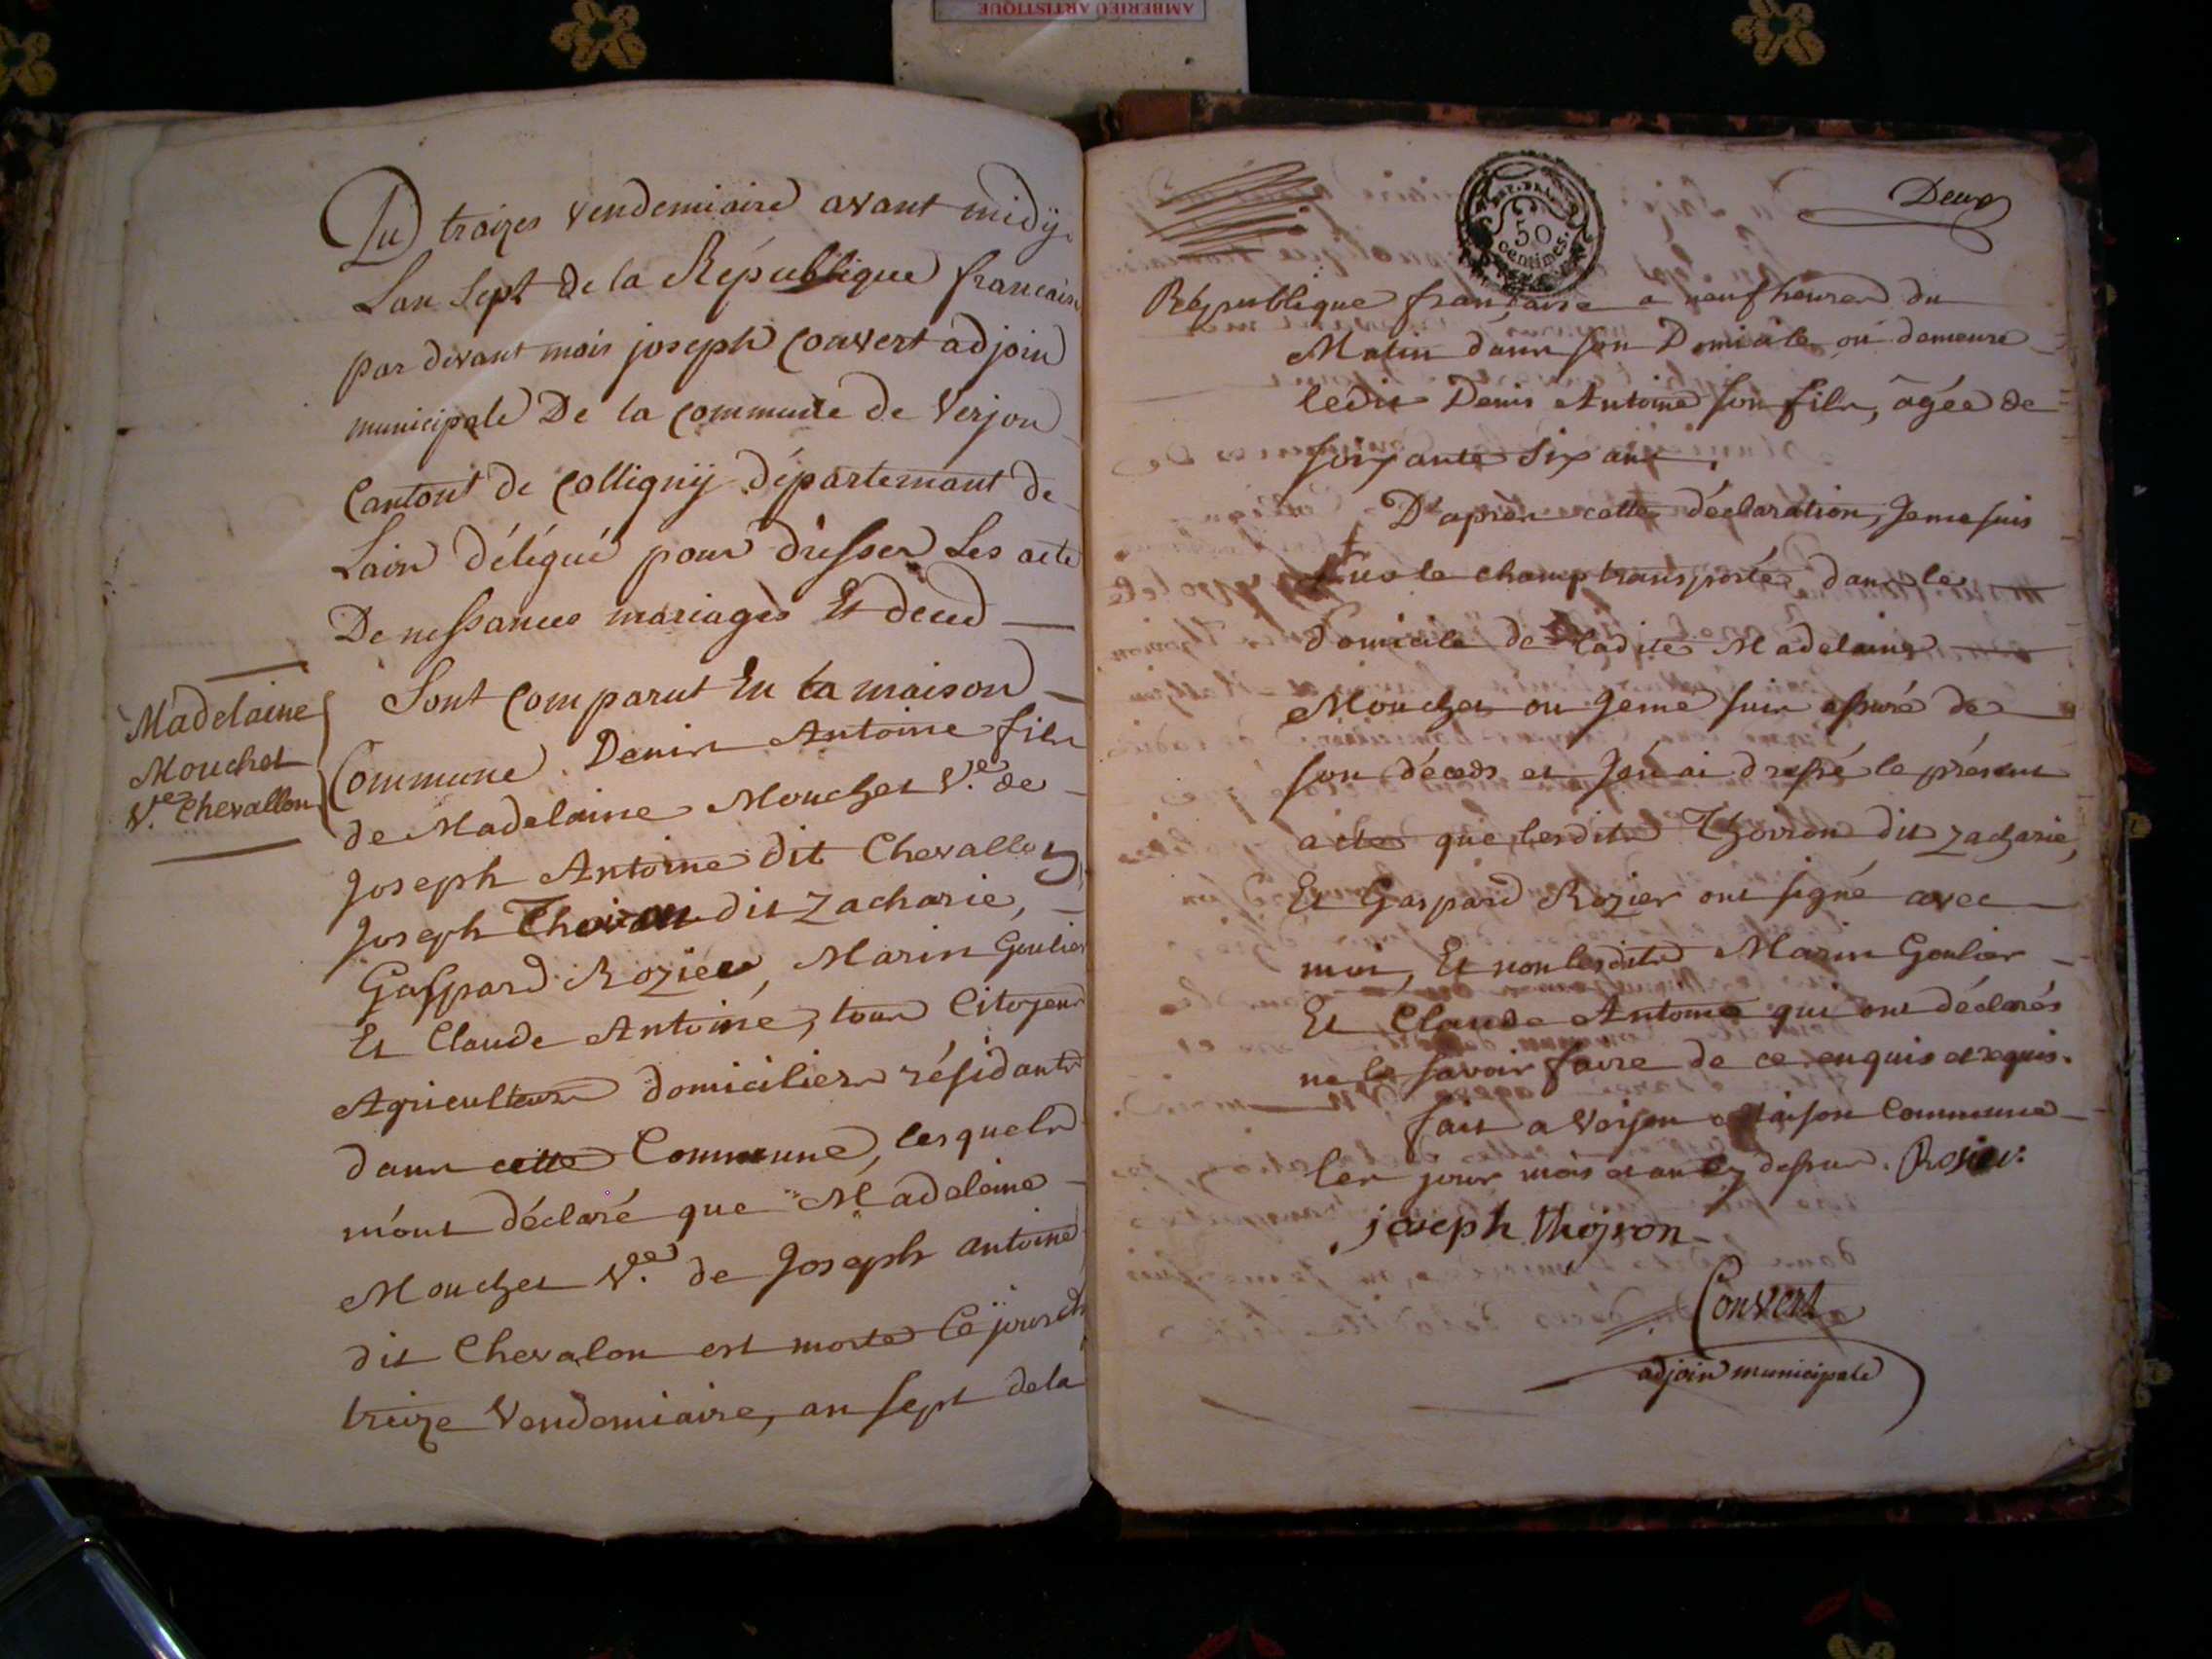 AMBERIEU ARTISTIQUE
Du traizes vendemiaire avant midÿ
Lan Sept de la République francaise
par devant mois joseph Convert adjoin
municipale De la commune de Verjon
Cantont de Colligniÿ département de
Lain délégué pour dresser Les acte
De nessances mariages Et deced
Sont comparut En la maison
Madelaine
Mouchet
Ve. Chevallon
Commune Denis Antoine fils
de Madelaine Mouchet Ve. de
Joseph Antoine dit Chevallon
Joseph Thoiron dit Zacharie,
Gaspard Rozier, Marin Goulier
Et Claude Antoine, tous Citoyens
Agriculteurs domiciliers résidants
dans cette Commune, lesquels
m'ont déclaré que Madelaine
Mouchet Ve. de Joseph antoine
dit Chevalon est morte Ce jourdh
treize Vendemiaire, an sept dela
Deux
50
Centimes.
République française a neuf heures du
Matin dans son Domicile où demeure
ledit Denis Antoine son fils, âgée de
soixante Six ans.
D'après cette déclaration, Je me suis
sur le champ transporté dans le
domicile de ladite Madelaine
Mouchet ou Je me suis assuré de
son déceds et J'en ai dressé le présent
acte que lesdits Thoiron dit Zacharie,
Et Gaspard Rozier ont signé avec
moi, Et non lesdits Marin Goulier
Et Claude Antoine qui ont déclarés
ne le savoir faire de ce enquis et requis.
fait a Verjon Maison Commune
les jour mois et an cy dessus. Rosier.
joseph thojron
Convert
adjoin municipale